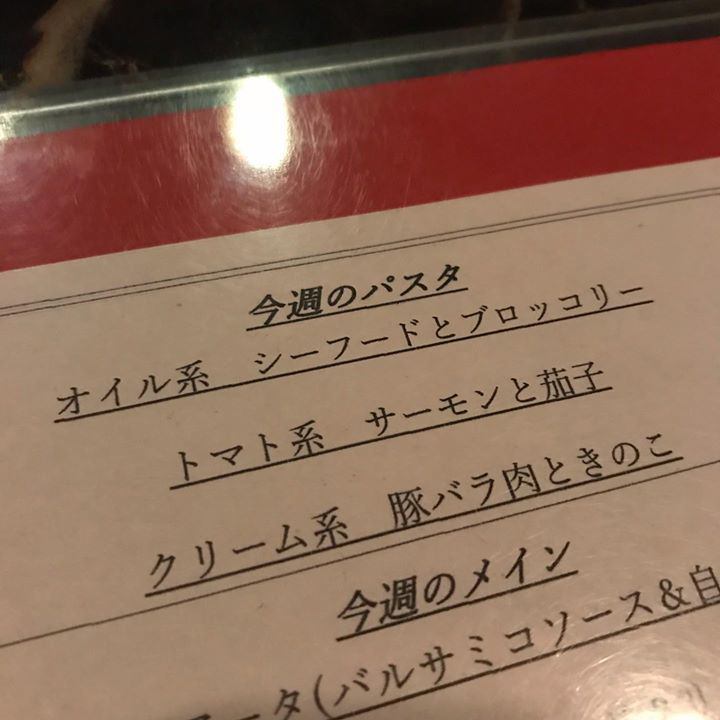 今週のパスタ
オイル系　シーフードとブロッコリー
トマト系　サーモンと茄子
クリーム系　豚バラ肉ときのこ
今週のメイン
ータ(バルサミコソース&自